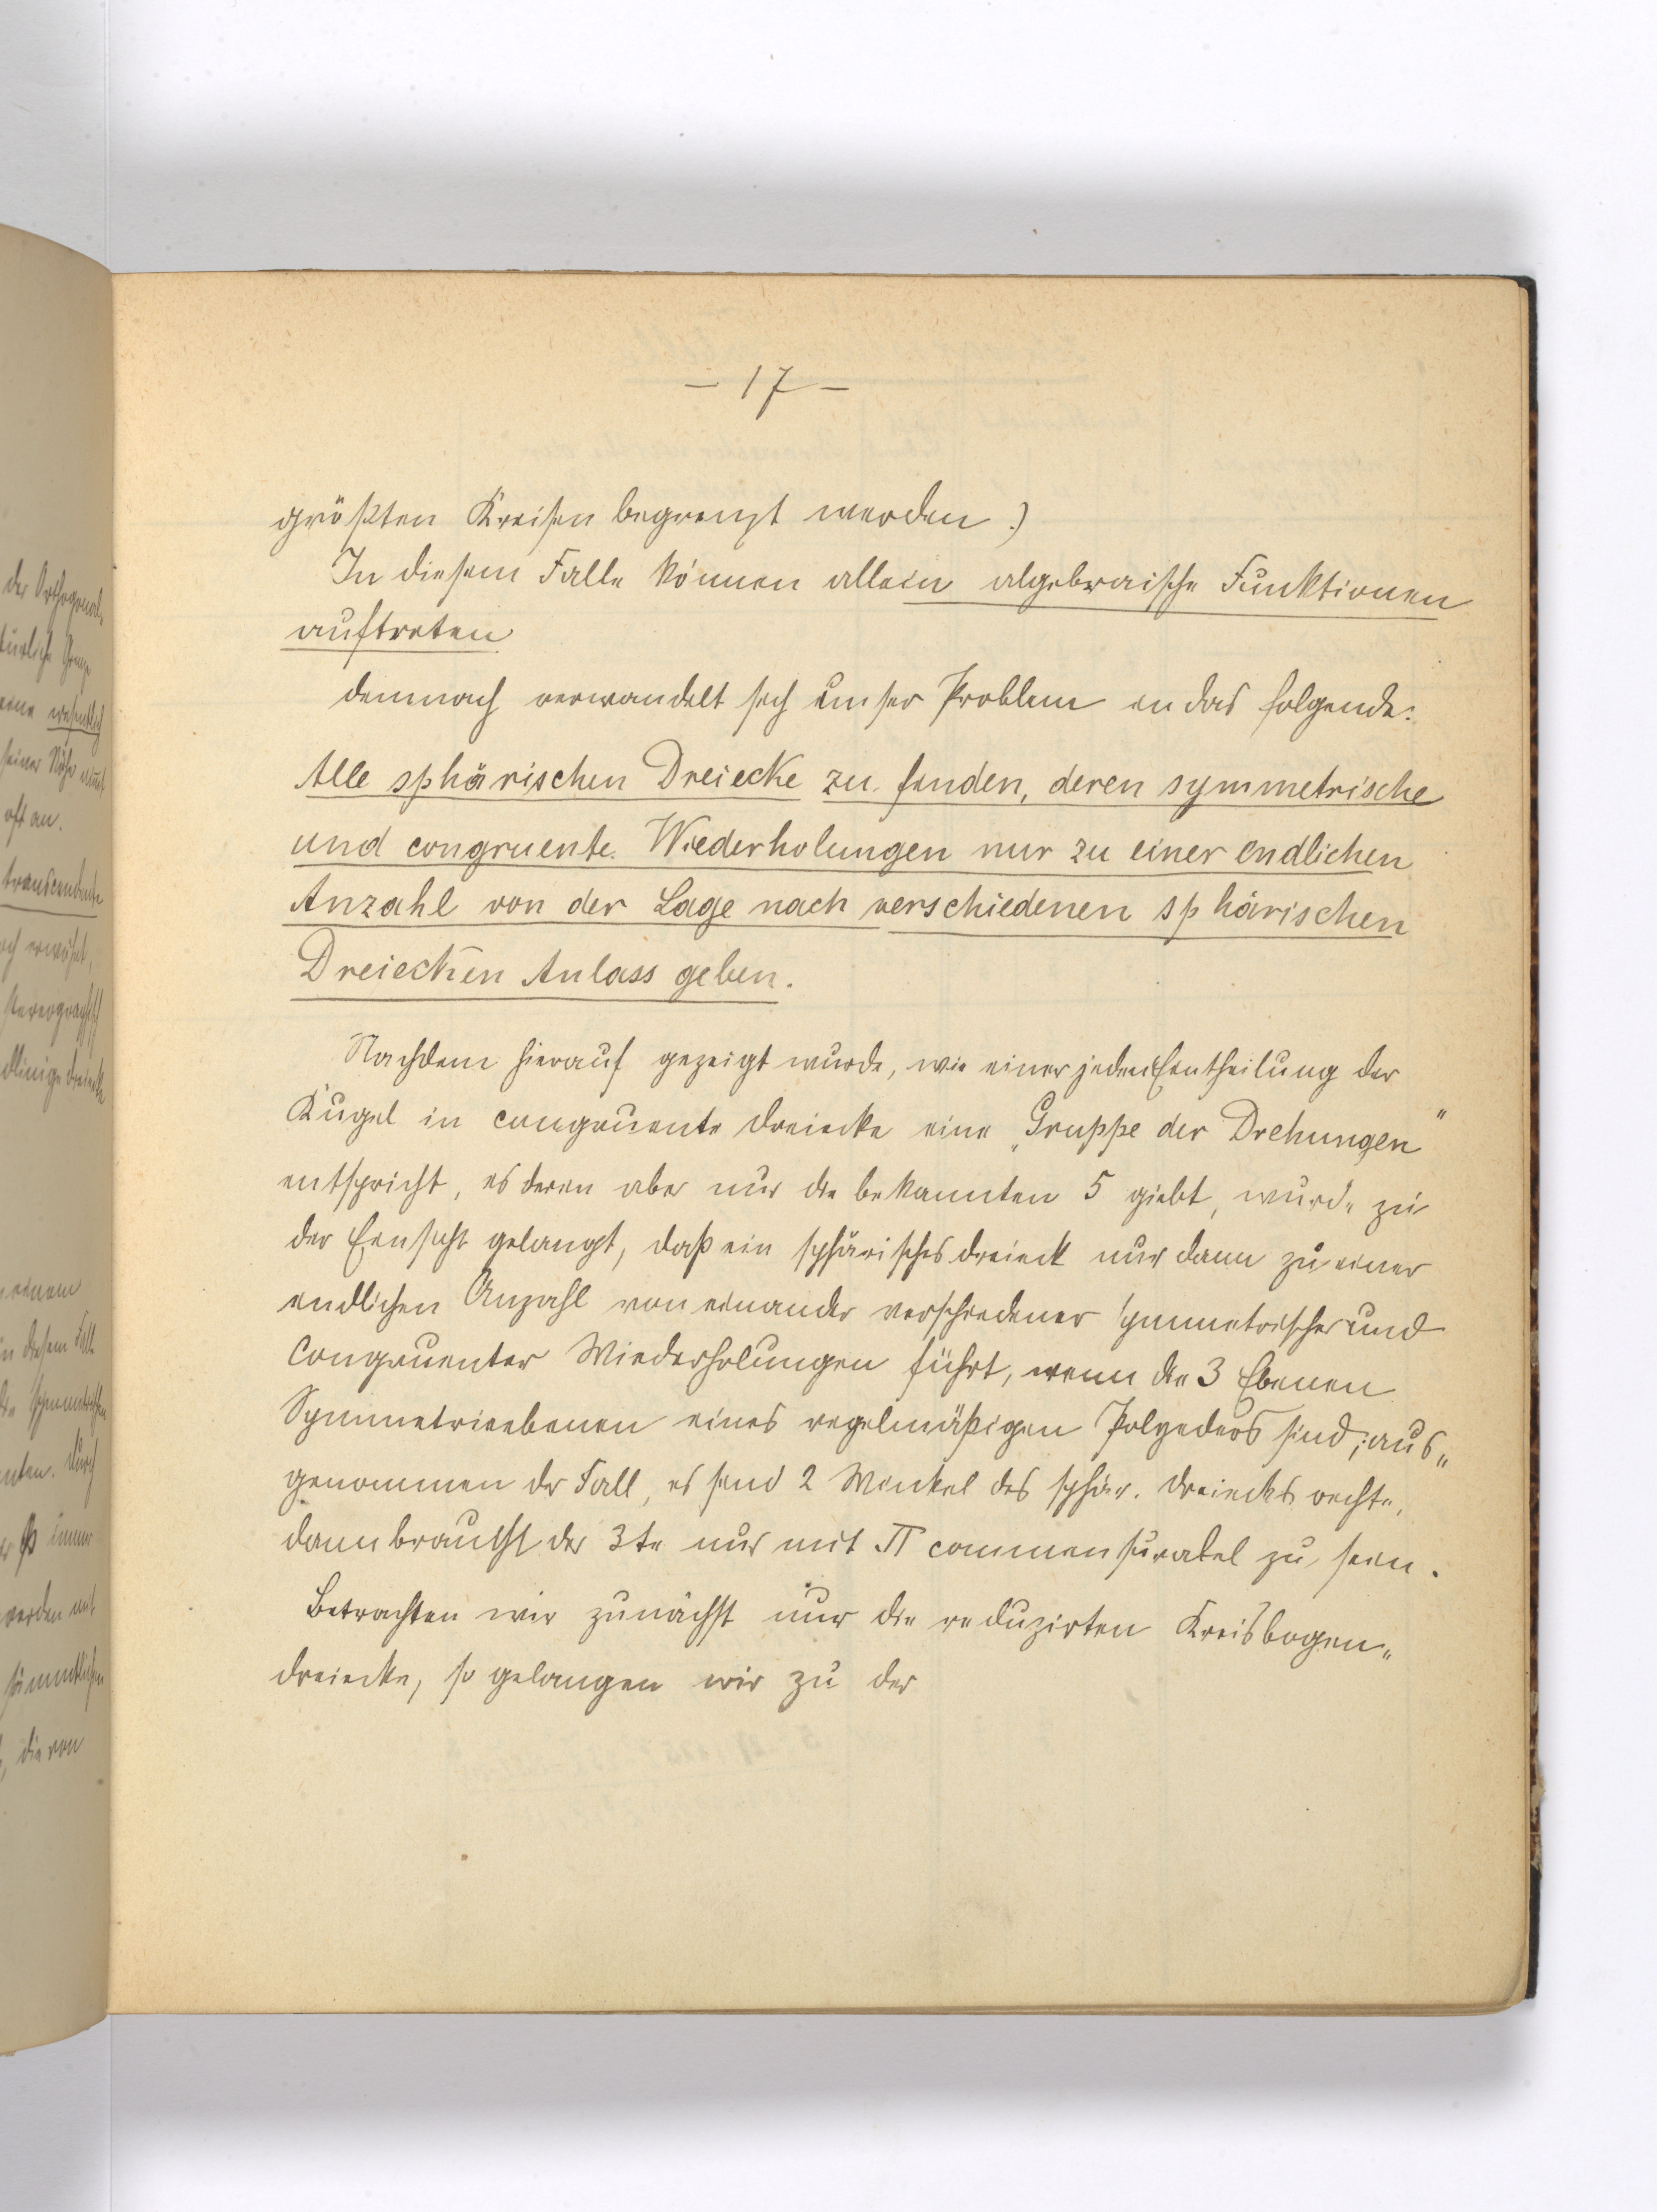 — 17 —
größten Kreisen begrenzt werden.)
In diesem Falle können allein algebraische Funktionen
auftreten.
demnach verwandelt sich unser Problem in das folgende:
Alle sphärischen Dreiecke zu finden, deren symmetrische
und congruente Wiederholungen nur zu einer endlichen
Anzahl von der Lage nach verschiedenen sphärischen
Dreiecken Anlass geben.
Nachdem hierauf gezeigt wurde, wie einer jeden Eintheilung der
Kugel in congruente Dreiecke eine „Gruppe der Drehungen"
entspricht, es deren aber nur die bekannten 5 giebt, wurde zu
der Einsicht gelangt, daß ein sphärisches Dreieck nur dann zu einer
endlichen Anzahl von einander verschiedener symmetrischer und
congruenter Wiederholungen führt, wenn die 3 Ebenen
Symmetrieebenen eines regelmäßigen Polyeders sind; aus„
genommen der Fall, es sind 2 Winkel des sphär. Dreiecks rechte,
dann braucht der 3te nur mit π commensurabel zu sein.
Betrachten wir zunächst nur die reduzirten Kreisbogen„
dreiecke, so gelangen wir zu der
der Orthogonal„
türliche Grenze
eine wesentlich
seiner Nähe
oft an.
transcendente
einem
in diesem Fall
die symmetrischen
nten. Durch
immer
werden mit
sämmtlichen
, die von